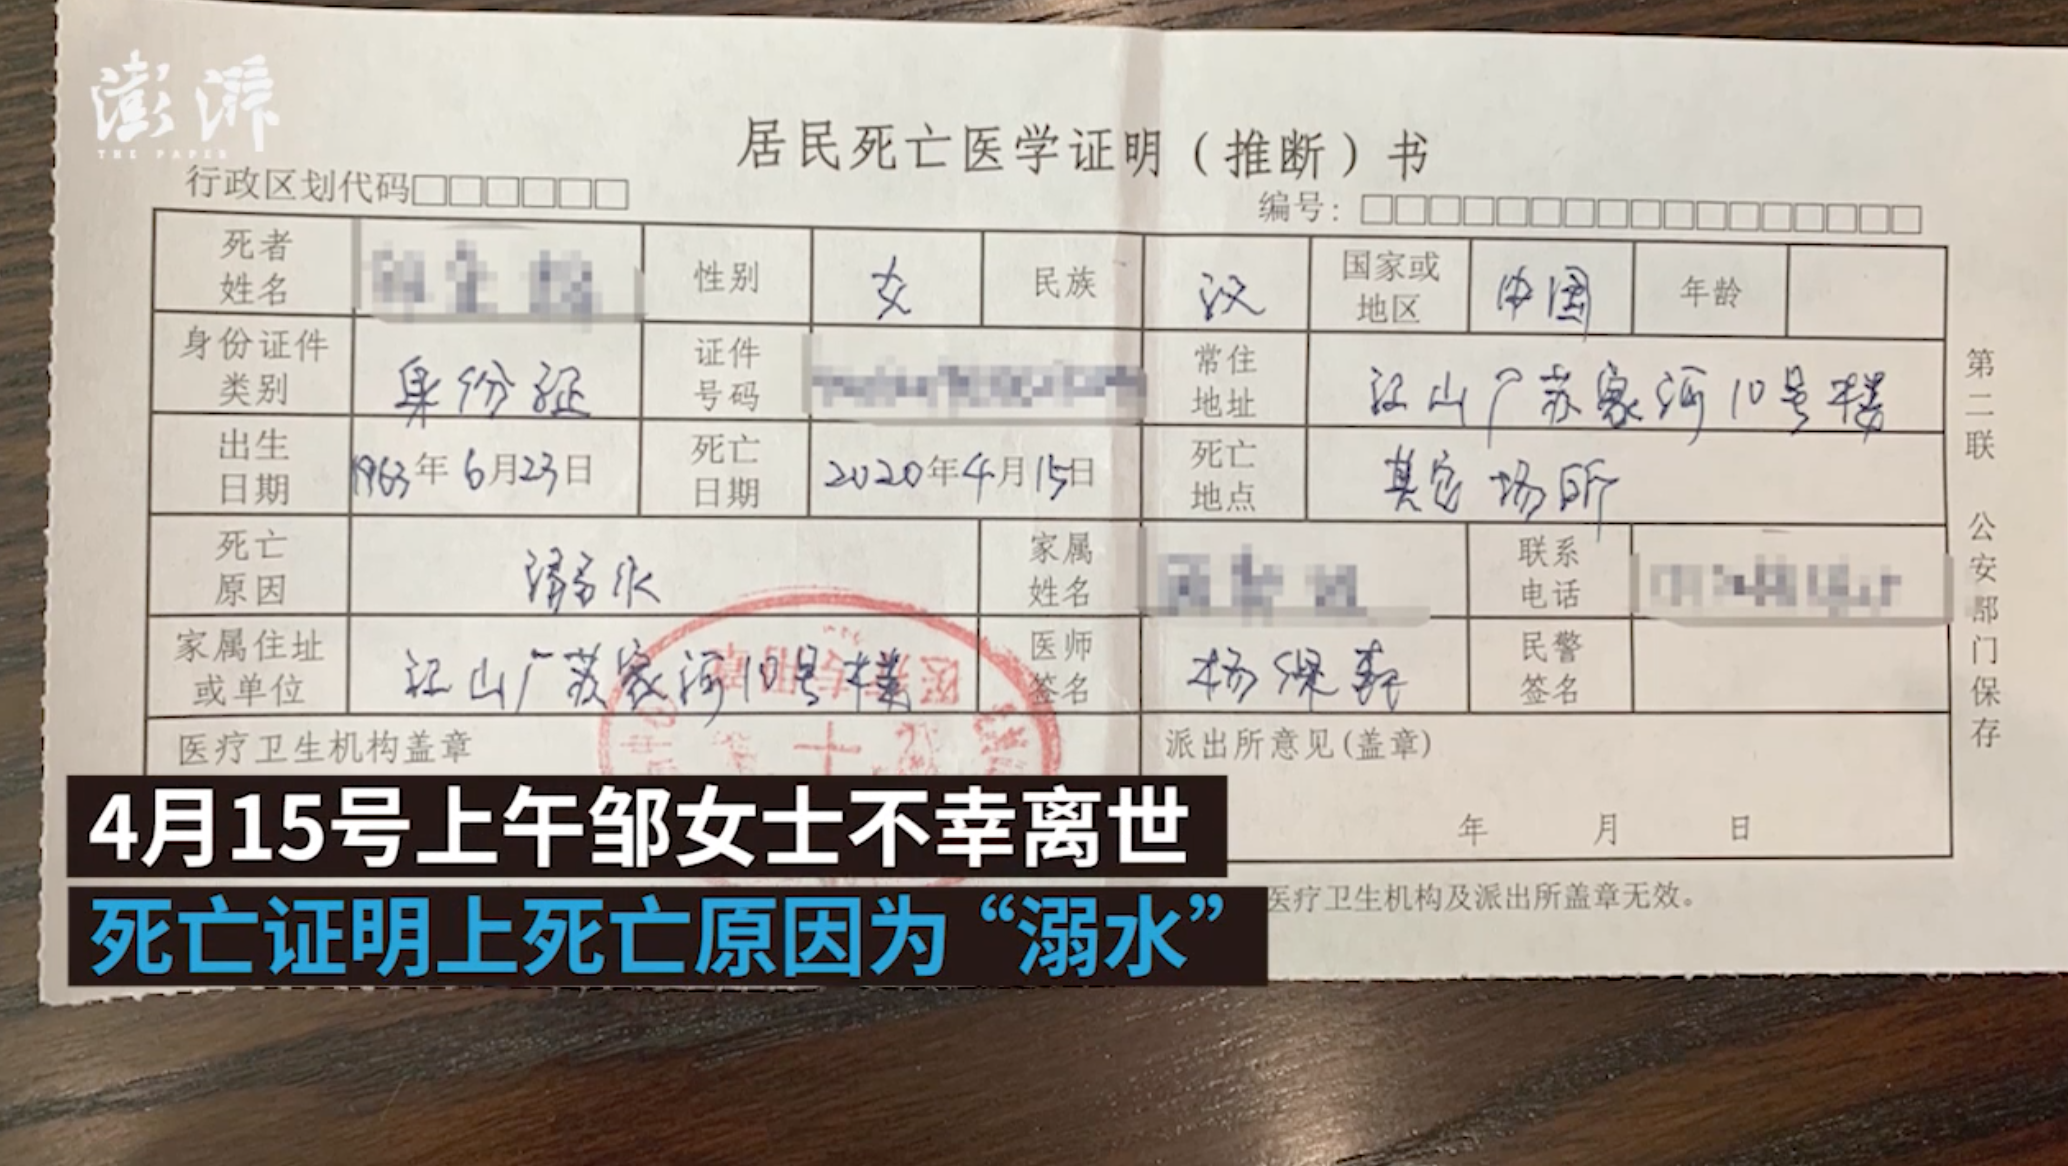 澎湃
THE PAPER
居民死亡医学证明（推断）书
行政区划代码□□□□□□
编号：□□□□□□□□□□□□□□□□□
死者姓名 性别 女 民族 汉 国家或地区 中国 年龄
身份证件类别 身份证 证件号码 常住地址 江山厂苏家河10号楼
出生日期 1963年6月23日 死亡日期 2020年4月15日 死亡地点 其它场所
死亡原因 溺水 家属姓名 联系电话
家属住址或单位 江山厂苏家河10号楼 医师签名 民警签名
医疗卫生机构盖章 派出所意见(盖章)
年 月 日
医疗卫生机构及派出所盖章无效。
第二联 公安部门保存
4月15号上午邹女士不幸离世
死亡证明上死亡原因为“溺水”